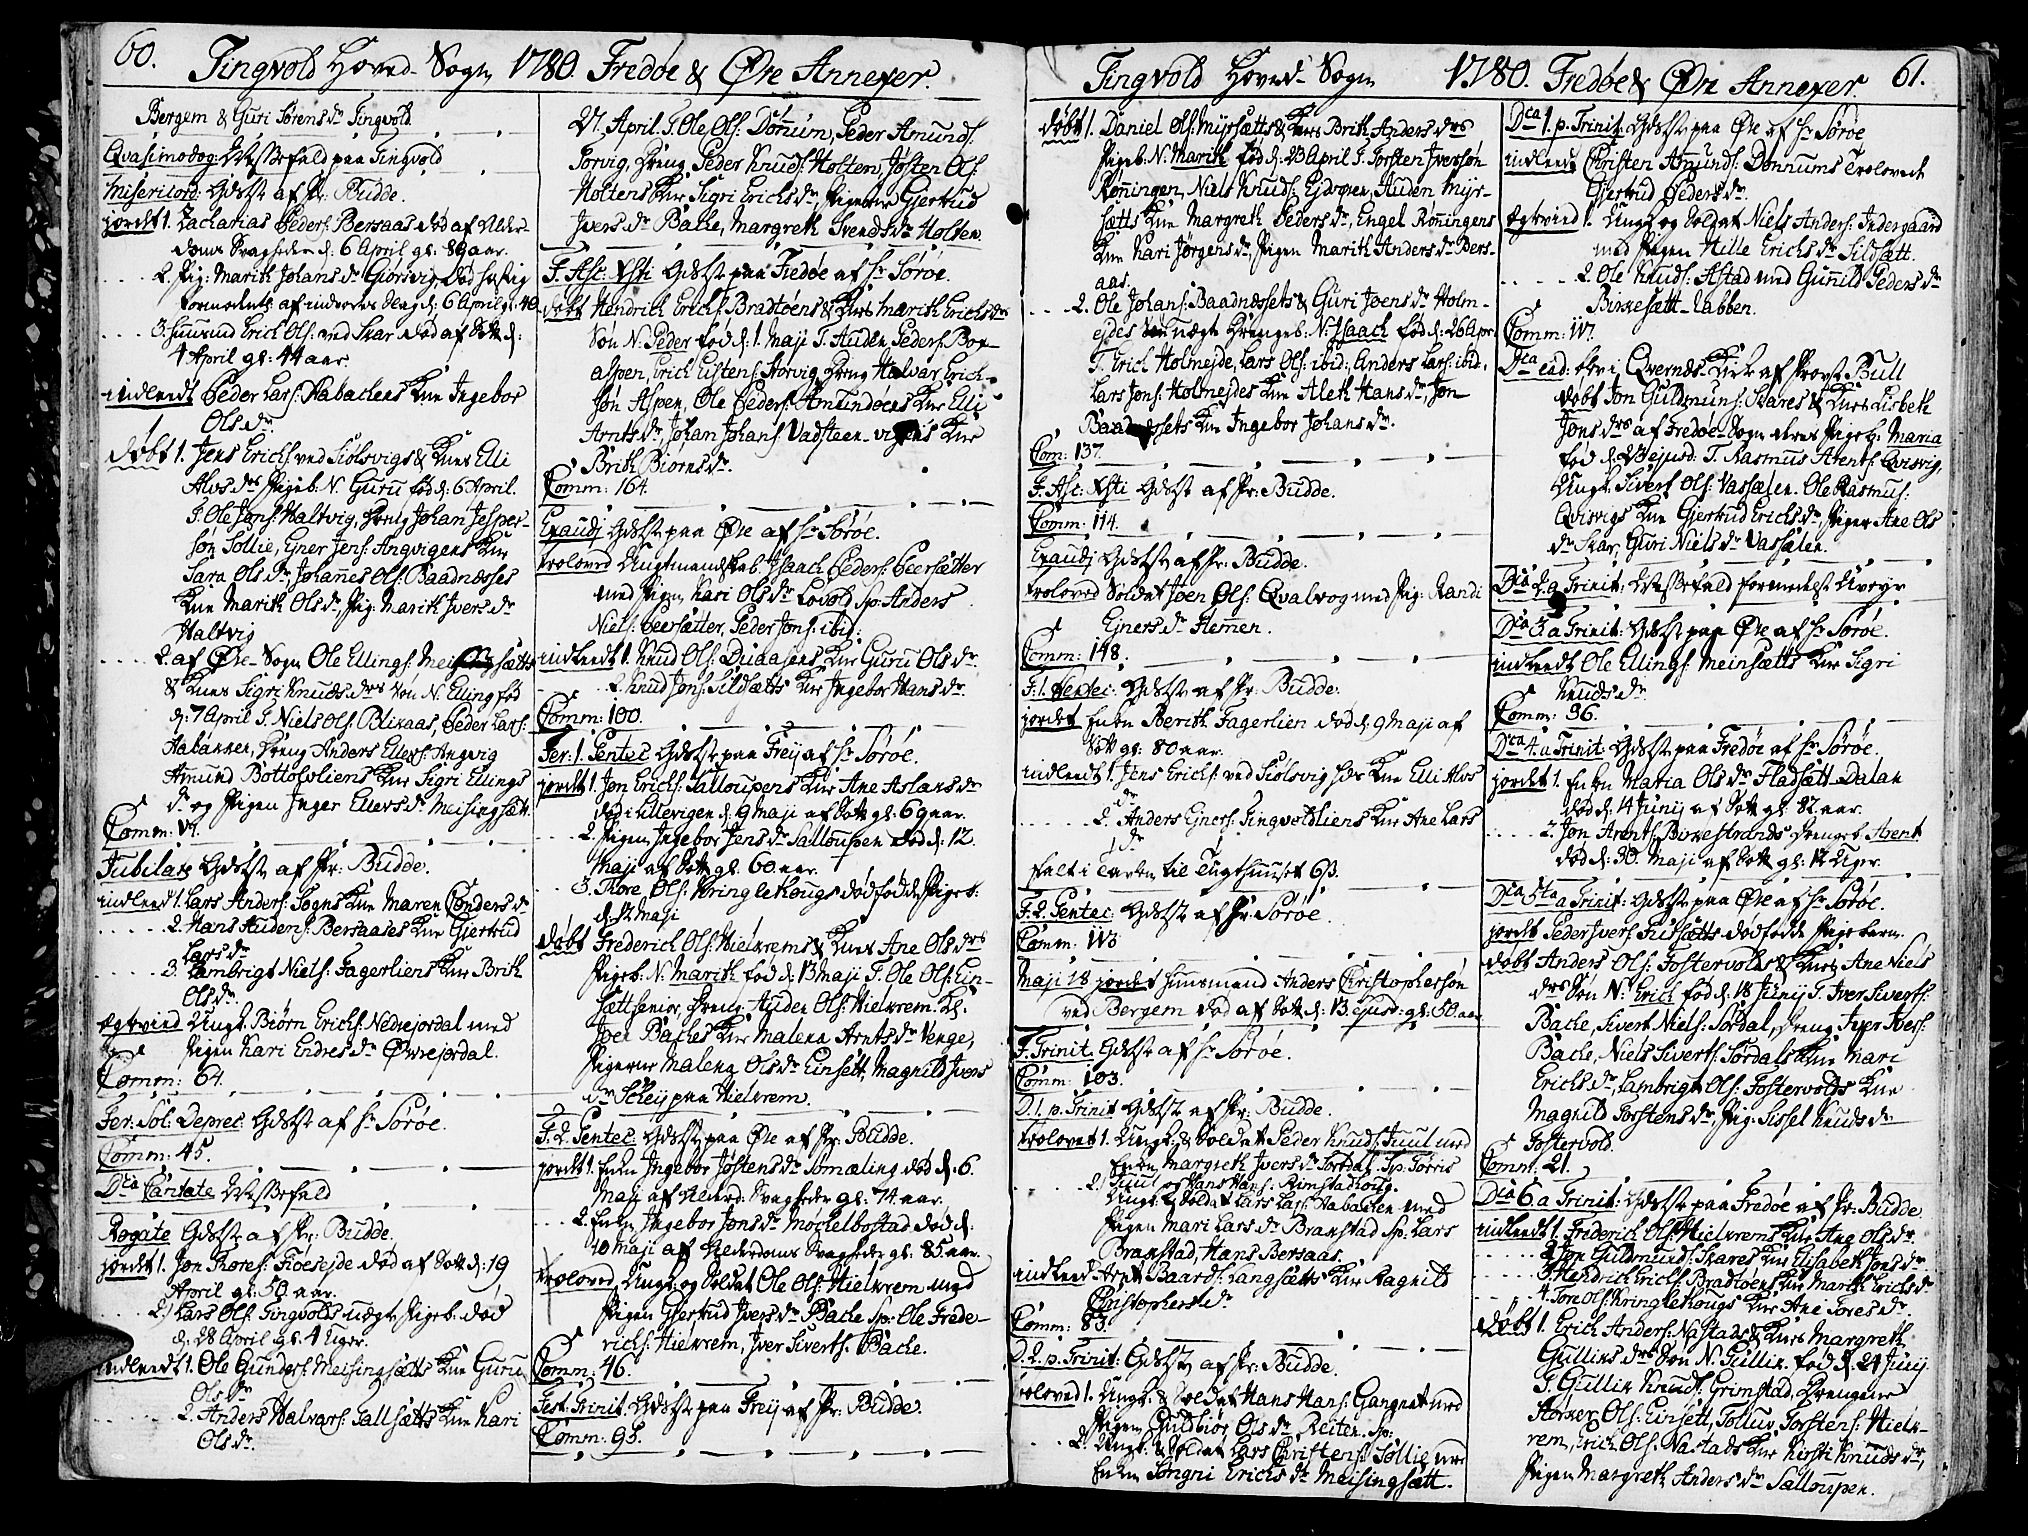 60. Tingvold Hoved-Sogn 1780. Fredøe & Øre Annexer.
Bergem & Guri Sørens dr Tingvold.
Qvasimodog: Messefald paa Tingvold
Misericord: Gdst af Hr: Budde.
jordet 1. Zacharias Peders: Bersaas død af Alder-
doms Svaghed d: 6 April gl: 89 aar.
2. Pig: Marith Johans dr Giørsvig, død hastig
formodentl: af indvortes Slag d: 6 April gl: 40.
3. Huusmd Erich Ols: ved Skar død af Sott d:
4 April gl: 44 aar.
indleedt Peder Lars: Habachens Kne Ingebor
Ols dr.
døbt 1. Jens Erichs: ved Siølsvigs & Knes Elli
Alvs drs Pigeb: N. Guru fød d: 6 April.
T. Ole Jøns: Haltvig, Dreng Johan Jesper-
søn Sollie, Ener Jens: Angvigens Kne
Sara Ols dr, Johanes Ols: Baadnesses
Kne Marith Ols dr, Pig: Marith Ivers dr
Haltvig
2. af Øre-Sogn Ole Ellings: Meisingsætts
& Knes Sigri Knuds drs Søn N. Elling fød
d: 7 April T. Niels Ols: Blixaas, Peder Lars:
Habakken, Dreng Anders Ellevs: Angvig
Amund Bottolvliens Kne Sigri Ellings
dr og Pigen Inger Ellevs dr Meisingsætt.
Comm: 121.
Jubilate Gdst af Hr: Budde.
indleedt 1. Lars Anders: Sogns Kne Maren Conders dr
2. Hans Audens: Bersaases Kne Gjertrud
Lars dr
3. Lambrigt Niels: Fagerliens Kne Brith
Ols dr
Egtevied Ungk: Biørn Erichs: Nedrejordal med
Pigen Kari Endres dr Øvrejordal.
Comm: 64.
Fer: Sol: Deprec: Gdst af Hr Sørøe.
Comm: 45.
Dca Cantate Messefald
Rogate Gdst af Hr: Budde.
jordet 1. Jon Thores: Koesejde død af Sott d: 19
April gl: 50 aar.
2. Lars Ols: Tingvolds uægte Pigeb: død
d: 28 April gl: 4 Uger.
indleedt 1. Ole Gunders: Meisingsætts Kne Guru
Ols dr
2. Anders Halvars: Sallsætts Kne Kari
Ols dr.
27. April. T. Ole Ols: Donum, Peder Amunds:
Torvig, Dreng Peder Knuds: Holten, Josten Ols:
Holtens Kne Sigri Erichs dr, Pigerne Gjertrud
Ivers dr Bache, Margreth Svends dr Holten.
F. Asc: Xsti Gdst paa Fredøe af Hr Sørøe.
døbt Hendrich Erichs: Bradtøens & Knes Marith Erichs drs
Søn N. Peder fød d: 1 Maji T. Auden Peders: Bog-
aspen, Erich Eistens: Horvig, Dreng Halvar Erich-
søn Aspen, Ole Peders: Amundøens Kne Elli
Arnts dr, Johan Johans: Vadsteen-vigens Kne
Brith Biørns dr.
Comm: 164.
Exaudi Gdst paa Øre af Hr Sørøe.
troloved Ungemandskab. Isaach Peders: Peersætter
med Pigen Kari Ols dr Lovold Sp: Anders
Niels: Peersætter, Peder Jøns: ibid:
indleedt 1. Knud Ols: Duaasens Kne Guru Ols dr
2. Knud Jøns: Sildsætts Kne Ingebor Hans dr.
Comm: 100.
Fer: 1. Pentec: Gdst paa Frey af Hr Sørøe.
jordet 1. Jon Erichs: Salloupens Kne Ane Aslaks dr
død i Lillevigen d: 9 Maji af Sott gl: 69 aar.
2. Pigen Ingebor Jens dr Salloupen død d: 12.
Maji af Sott gl: 60 aar.
3. Thore Ols: Kringlehougs dødfødde Pigeb:
d: 12 Maji
døbt Frederich Ols: Hielkrems & Knes Ane Ols drs
Pigeb: N. Marith fød d: 13 Maji T. Ole Ols: Ein-
sætt senior, Dreng Auden Ols: Hielkrem. Kl:
Joen Baches Kne Malene Arnts dr Venge,
Pigerne Malena Ols dr Einsett, Magnild Ivers
dr Scheij paa Hielkrem.
F. 2. Pentec: Gdst paa Øre af Hr: Budde.
jordet 1. Enken Ingebor Jøstens dr Somæling død d: 6.
Maji af Alderd: Svaghed gl: 74 aar.
2. Enken Ingebor Jons dr Møchelbostad død d:
10 Maji af Alderdoms Svaghed gl: 85 aar.
trolovet, Ungk: og Soldat Ole Ols: Hielkrem med
Pigen Gjertrud Ivers dr Bache Sp: Ole Frede-
richs: Hielkrem, Iver Siverts: Bache.
Comm: 46.
Fest: Trinit: Gdst paa Frey af Hr: Budde.
Comm: 95.
Tingvold Hoved-Sogn 1780. Fredøe & Øre Annexer. 61.
døbt 1. Daniel Ols: Myrsætts & Knes Brith Anders drs
Pigeb: N: Marith fød d: 23 April T. Torsten Iversøn
Rønningen, Niels Knuds: Ejdsøren, Auden Myr-
sætts Kne Margreth Peders dr, Engel Rønningens
Kne Kari Jørgens dr, Pigen Marith Anders dr Bers-
aas.
2. Ole Johans: Baadnessets & Guri Joens dr Holm-
ejdes uægte Drengeb: N: Isaach fød d: 26 Apr:
T. Erich Holmejde, Lars Ols: ibid: Anders Lars: ibid.
Lars Jons: Holmejdes Kne Aleth Hans dr, Jon
Baadnessets Kne Ingebor Johans dr.
Com: 137.
F. Asc: Xsti Gdst af Hr: Budde.
Comm: 114.
Exaudi Gdst af Hr: Budde.
trolovet Soldat Joen Ols: Qvalvog med Pig: Randi
Ejners dr Hemnen.
Comm: 148.
F. 1. Pentec: Gdst af Hr: Budde:
jordet Enken Berith Fagerlien død d: 9 Maji af
Sott gl: 80 aar.
indleedt 1. Jens Erichs: ved Siølsvig hos Kne Elli Alvs
dr
2. Anders Ejners: Tingvoldliens Kne Ane Lars
dr
falt i Tavlen til Tugthuuset 63.
F. 2. Pentec: Gdst af Hr Sørøe.
Comm: 113
Maji 18 jordet Huusmand Anders Christophersøn
ved Bergem død af Sott d: 13 ejusd: gl: 50 aar
F. Trinit. Gdst af Hr Sørøe.
Comm: 103.
D. 1. p. Trinit Gdst af Hr: Budde.
trolovet 1. Ungk: & Soldat Peder Knuds: Juul med
Enken Margreth Ivers dr Sordal, Sp: Torris
Juul og Hans Hans: Rimstadhoug.
2. Ungk: & Soldat Lars Lars: Habakken med
Pigen Mari Lars dr Branstad Sp: Lars
Branstad, Hans Bersaas.
indleed Arnt Baards: Langsætts Kne Ragnild
Christophers dr
Comm: 83.
D. 2. p. Trinit: Gdst af Hr: Budde.
trolovet 1. Ungk: & Soldat Hans Hans: Gangnat med
Pigen Gudbiør Ols dr Reiten. Sp:
2. Ungk: & Soldat Lars Christens: Sollie med
Enken Songni Erichs dr Meisingsætt.
Dca 1. p. Trinit: Gdst paa Øre af Hr Sørøe
indleedt Christen Amunds: Donnums Trolovede
Gjertrud Peders dr
Egtevied 1. Ungk: og Soldat Niels Anders: Indergaard
med Pigen Hille Erichs dr Sildsætt.
2. Ole Knuds: Astad med Gunild Peders dr
Birkesætt-labben.
Comm: 117.
Dca ead: blev i Qvernæs Kirke af Provst Bull
døbt Jon Guldmuns: Skares & Knes Lisbeth
Jøns drs af Fredøe-Sogn deres Pigeb: Maria
fød d: 13 ejusd: T. Rasmus Arents: Qvisvig,
Ungk: Sivert Ols: Vassælen. Ole Rasmus:
Qvisvigs Kne Gjertrud Erichs dr, Piger Ane Ols
dr Skar, Guri Niels dr Vassælen.
Dca 2. a Trinit: Messefald formedelst Uveyr
Dca 3 a Trinit: Gdst paa Øre af Hr Sørøe.
indleedt Ole Ellings: Meinsætts Kne Sigri
Knuds dr
Comm: 96.
Dca 4. a Trinit: Gdst paa Fredøe af Hr Sørøe.
jordet 1. Enken Maria Ols dr Fladsætt-Dalen
død d: 14 Junij af Sott gl: 82 aar.
2. Jon Arents: Birkestrands Drengeb: Arent
død d: 30. Maji af Sott gl: 12 Uger.
Dca 5ta a Trinit: Gdst paa Øre af Hr Sørøe.
jordet Peder Ivers: Fiidsætts dødfødde Pigebarn.
døbt Anders Ols: Fostervolds & Knes Ane Niels
drs Søn N: Erich fød d: 18 Junij T. Iver Siverts:
Bache, Sivert Niels: Sordal, Dreng Iver Ivers:
Bache, Niels Siverts: Sordals Kne Mari
Erichs dr, Lambrigt Ols: Fostervolds Kne
Magnild Torstens dr, Pig: Sissel Knuds dr
Fostervold.
Comm: 21.
Dca 6. a Trinit: Gdst paa Fredøe af Hr: Budde
indleedt 1. Friderich Ols: Hielkrems Kne Ane Ols dr.
2. Jon Guldmunds: Skares Kne Elisabeth Jøns dr
3. Hendrich Erichs: Bradtøens Kne Marith Erichs dr
4. Tore Ols: Kringlehougs Kne Ane Tores dr.
døbt 1. Erich Anders: Nastads & Knes Margreth
Gulliks drs Søn N. Gullik fød d: 24 Junij
T. Gullik Knuds: Grimstad, Drengene
Storker Ols: Einsett, Tolluv Torstens: Hielk-
rem, Erich Ols: Nastads Kne Kirsti Knuds dr,
Pigen Margreth Anders dr Salloupen.